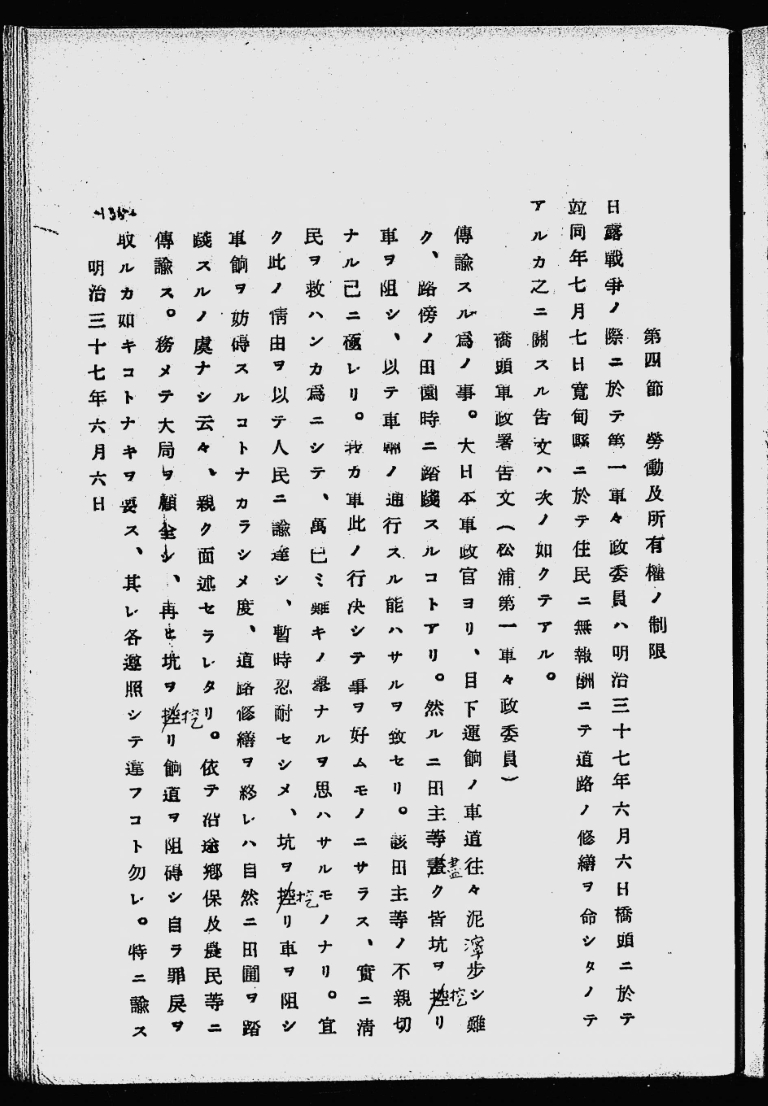 第四節　勞働及所有權ノ制限
日露戰爭ノ際ニ於テ第一軍々政委員ハ明治三十七年六月六日橋頭ニ於テ
竝同年七月七日寬甸縣ニ於テ住民ニ無報酬ニテ道路ノ修繕ヲ命シタノテ
アルカ之ニ關スル吿文ハ次ノ如クテアル。
橋頭軍政署吿文(松浦第一軍々政委員)
傳諭スル爲ノ事。大日本軍政官ヨリ、目下運餉ノ車道往々泥濘步シ難
ク、路傍ノ田園時ニ踏踐スルコトアリ。然ルニ田主等盡ク皆坑ヲ挖リ
車ヲ阻シ、以テ車輛ノ通行スル能ハサルヲ致セリ。該田主等ノ不親切
ナル已ニ極レリ。我カ車此ノ行決シテ事ヲ好ムモノニサラス、實ニ淸
民ヲ救ハンカ爲ニシテ、萬已ミ難キノ擧ナルヲ思ハサルモノナリ。宜
ク此ノ情由ヲ以テ人民ニ諭達シ、暫時忍耐セシメ、坑ヲ挖リ車ヲ阻シ
車餉ヲ妨碍スルコトナカラシメ度、道路修繕ヲ終レハ自然ニ田圃ヲ踏
踐スルノ處ナシ云々、親ク面述セラレタリ。依テ沿途鄕保及農民等ニ
傳諭ス。務メテ大局ヲ顧全シ、再ヒ坑ヲ挖リ餉道ヲ阻碍シ自ラ罪戾ヲ
取ルカ如キコトナキヲ要ス、其レ各遵照シテ違フコト勿レ。特ニ諭ス
明治三十七年六月六日